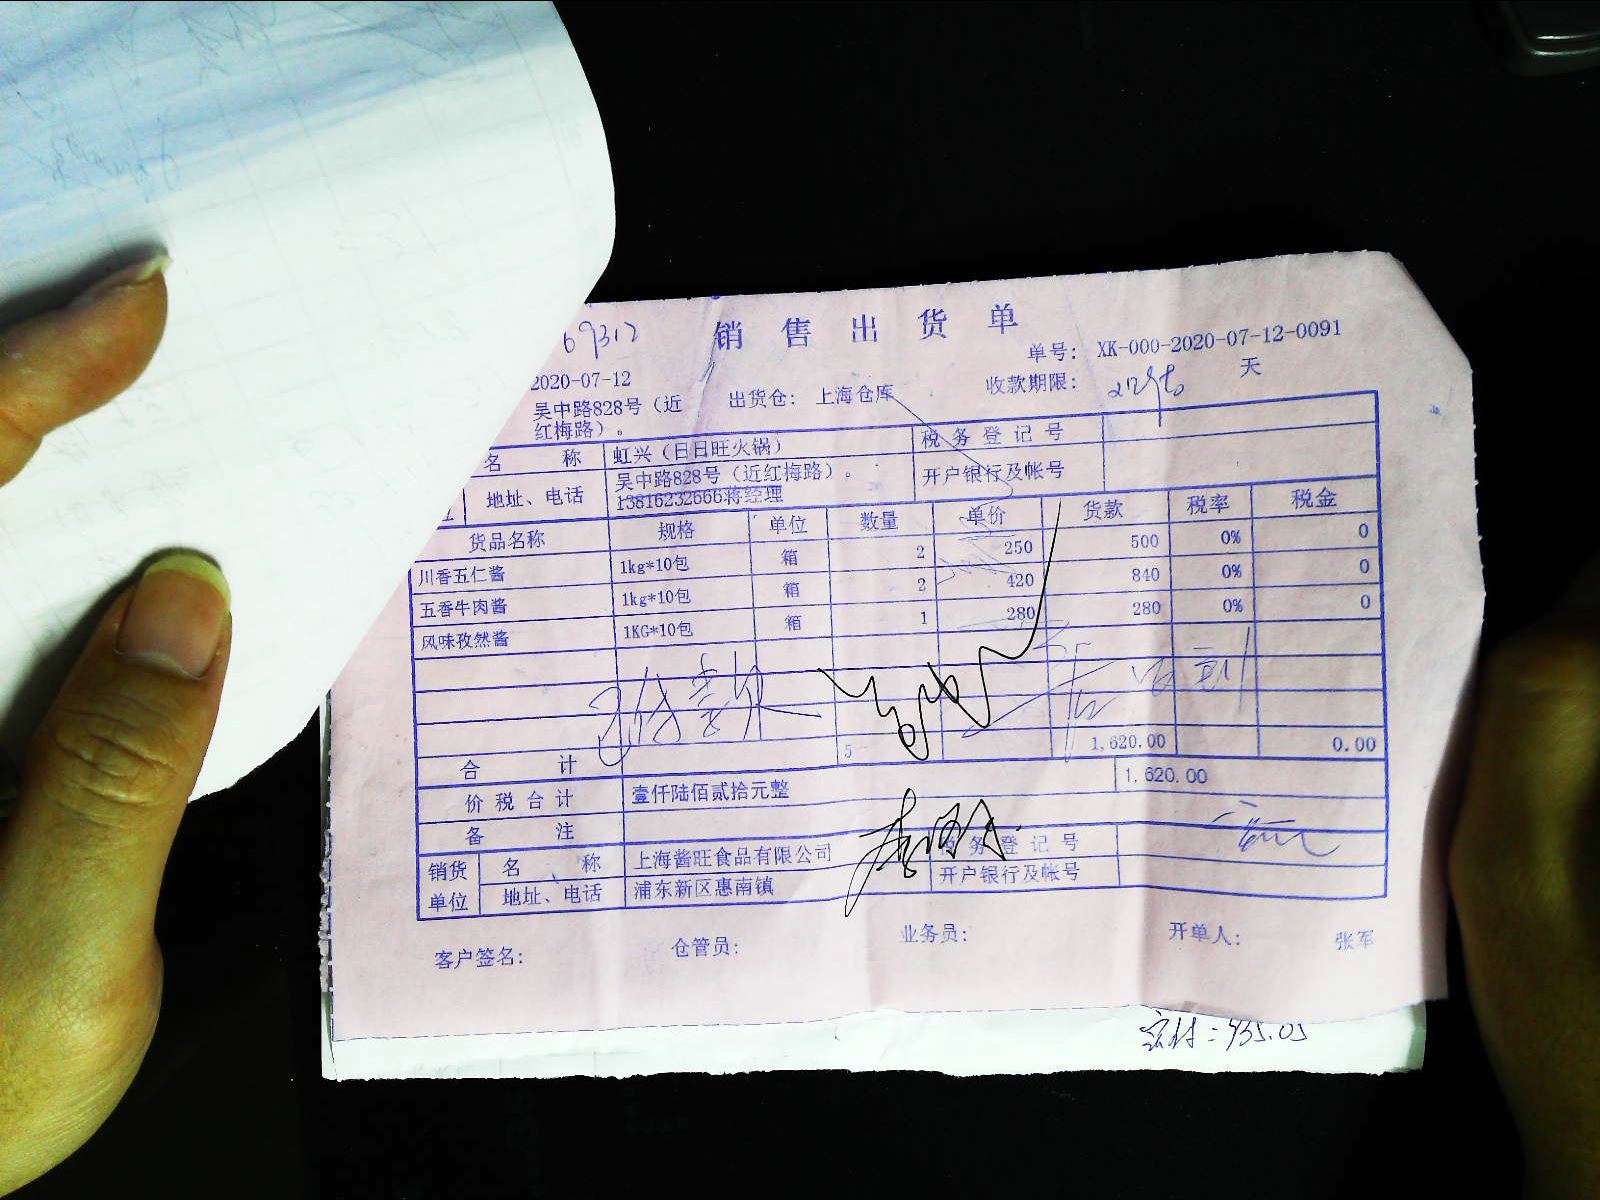 69317
销售出货单
单号: XK-000-2020-07-12-0091
2020-07-12
收款期限: 天
吴中路828号（近红梅路）。
出货仓: 上海仓库
名 称 虹兴（日日旺火锅） 税务登记号
地址、电话 吴中路828号（近红梅路）。 开户银行及帐号
13816232666蒋经理
货品名称 规格 单位 数量 单价 货款 税率 税金
川香五仁酱 1kg*10包 箱 2 250 500 0% 0
五香牛肉酱 1kg*10包 箱 2 420 840 0% 0
风味孜然酱 1KG*10包 箱 1 280 280 0% 0
合 计 5 1,620.00 0.00
价税合计 壹仟陆佰贰拾元整 1,620.00
备 注
销货单位 名 称 上海酱旺食品有限公司 税务登记号
地址、电话 浦东新区惠南镇 开户银行及帐号
客户签名: 仓管员: 业务员: 开单人: 张军